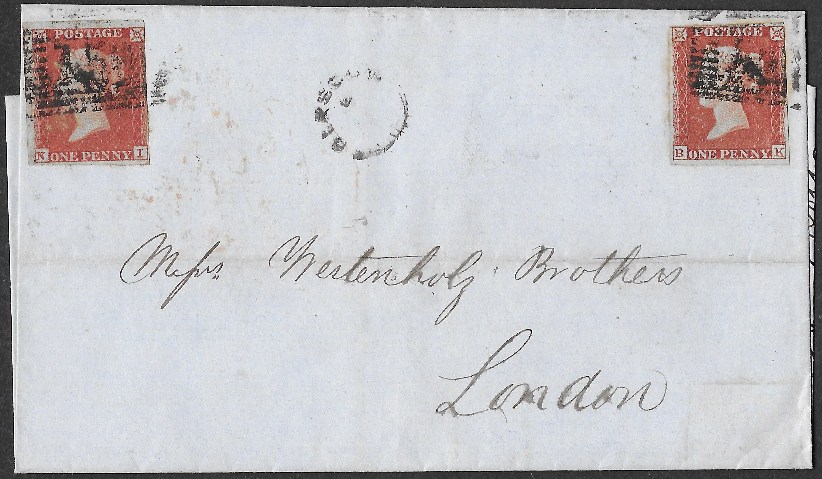 POSTAGE
N I
ONE PENNY
GLASGOW
POSTAGE
B K
ONE PENNY
Messrs Westenholz Brothers
London